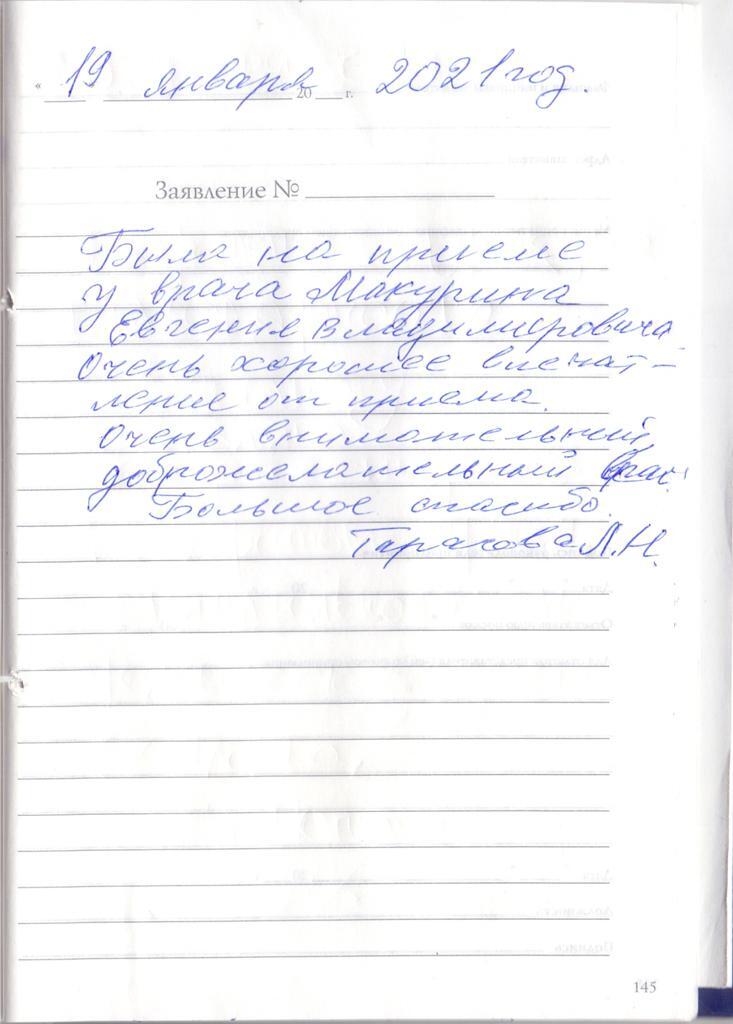 « 19 января 20 г. 2021 год.
Заявление №
Была на приеме
у врача Макурина
Евгения Владимировича
Очень хорошее впечат-
ление от приема.
Очень внимательный,
доброжелательный врач.
Большое спасибо.
Тарасова Л.Н.
145